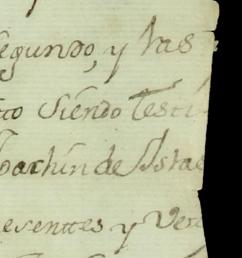 segundo, y las
tto siendo Testi
Joachin de Ysta
esenttes y Vez